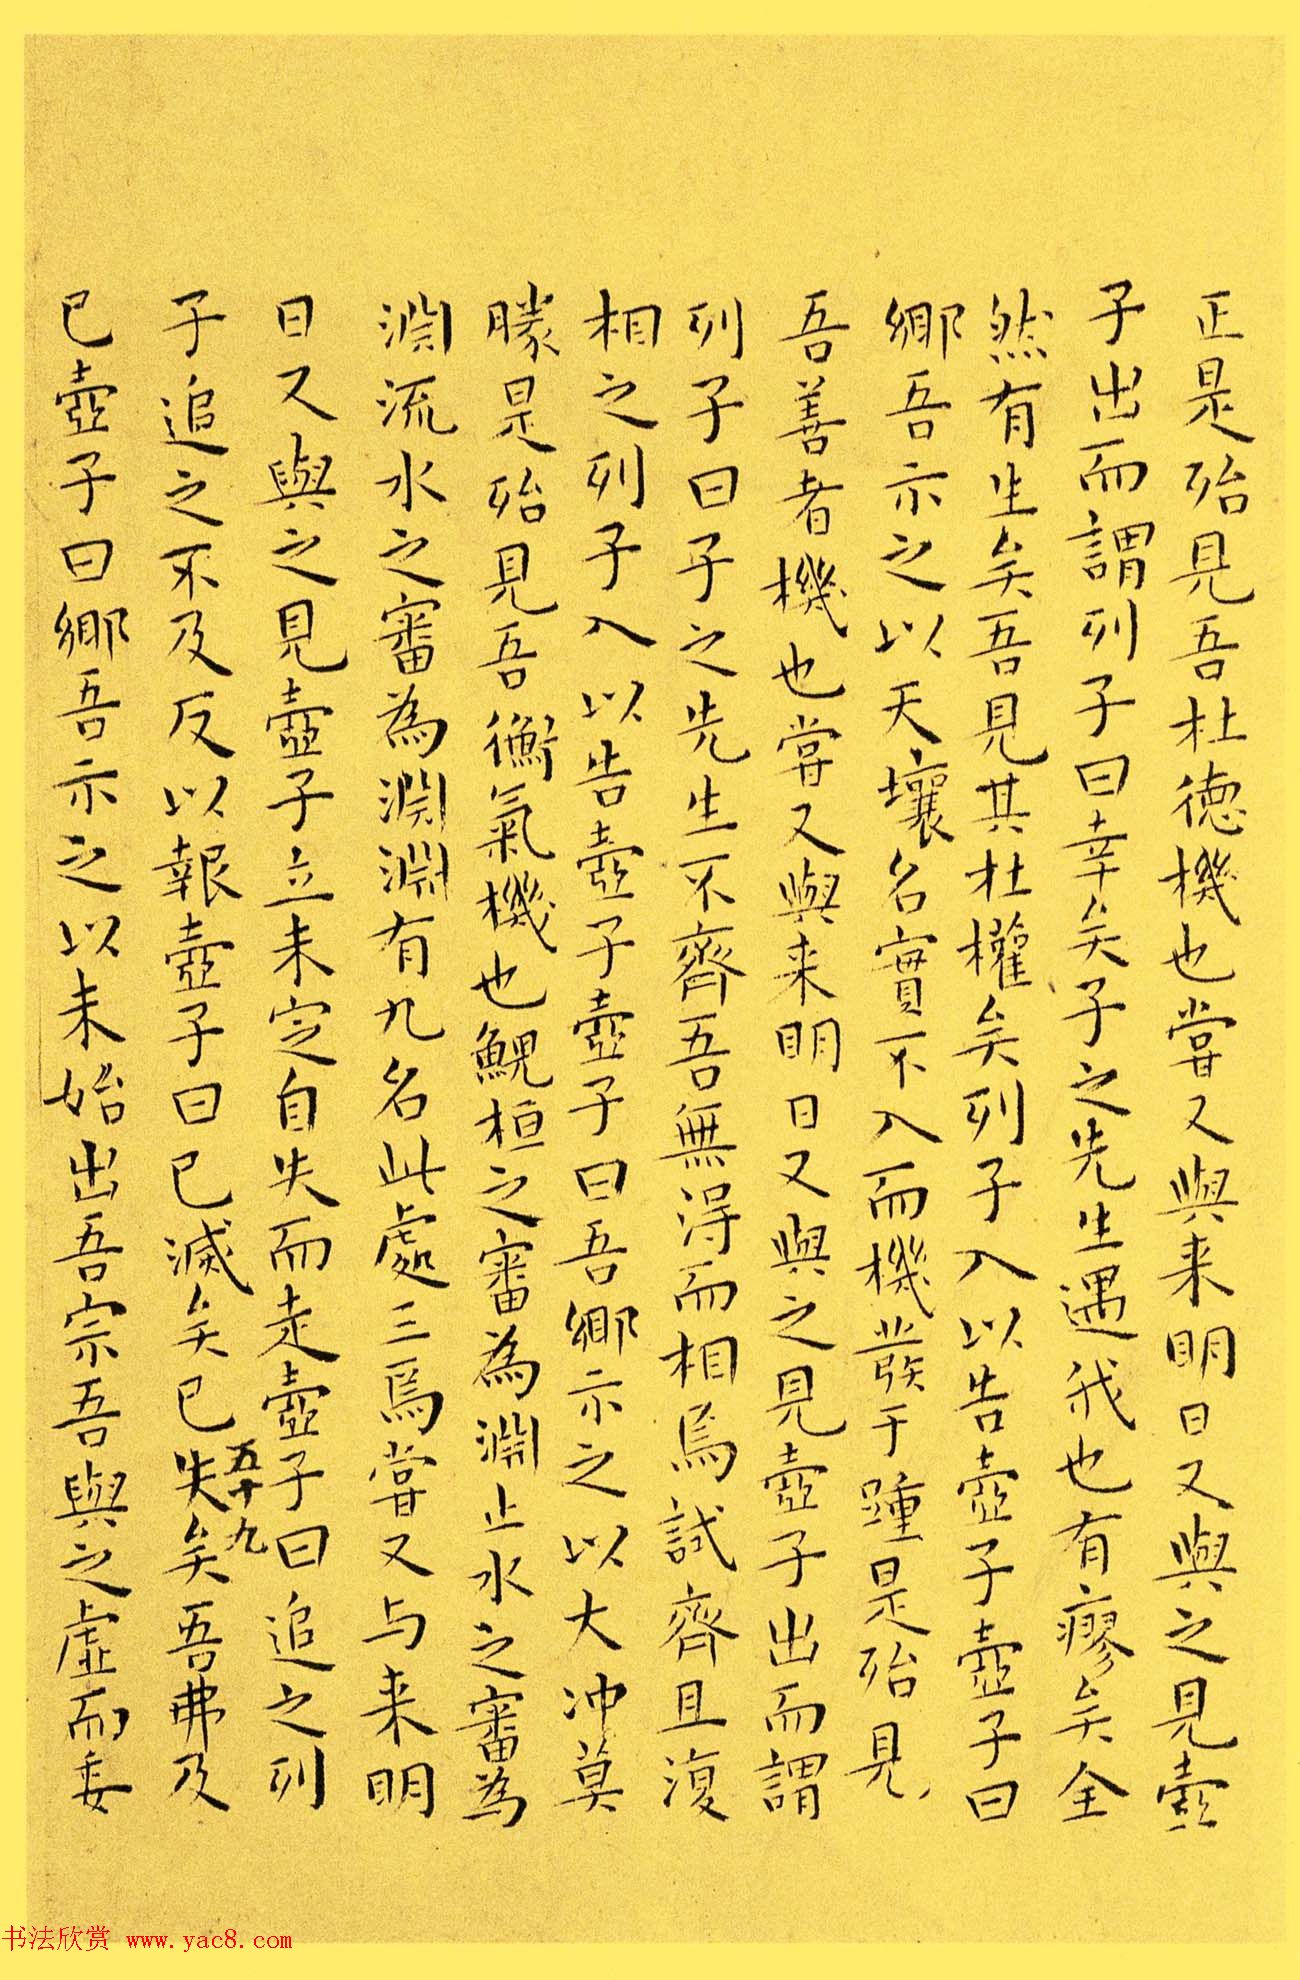 正是殆見吾杜德機也嘗又與来明日又與之見壺
子出而謂列子曰幸矣子之先生遇我也有瘳矣全
然有生矣吾見其杜權矣列子入以告壺子壺子曰
鄉吾示之以天壤名實不入而機發于踵是殆見
吾善者機也嘗又與来明日又與之見壺子出而謂
列子曰子之先生不齊吾無得而相焉試齊且復
相之列子入以告壺子壺子曰吾鄉示之以大冲莫
朕是殆見吾衡氣機也鯢桓之審為淵止水之審為
淵流水之審為淵淵有九名此處三焉嘗又与来明
日又與之見壺子立未定自失而走壺子曰追之列
子追之不及反以報壺子曰已滅矣已失矣吾弗及
五十九
已壺子曰鄉吾示之以未始出吾宗吾與之虛而委
书法欣赏 www.yac8.com